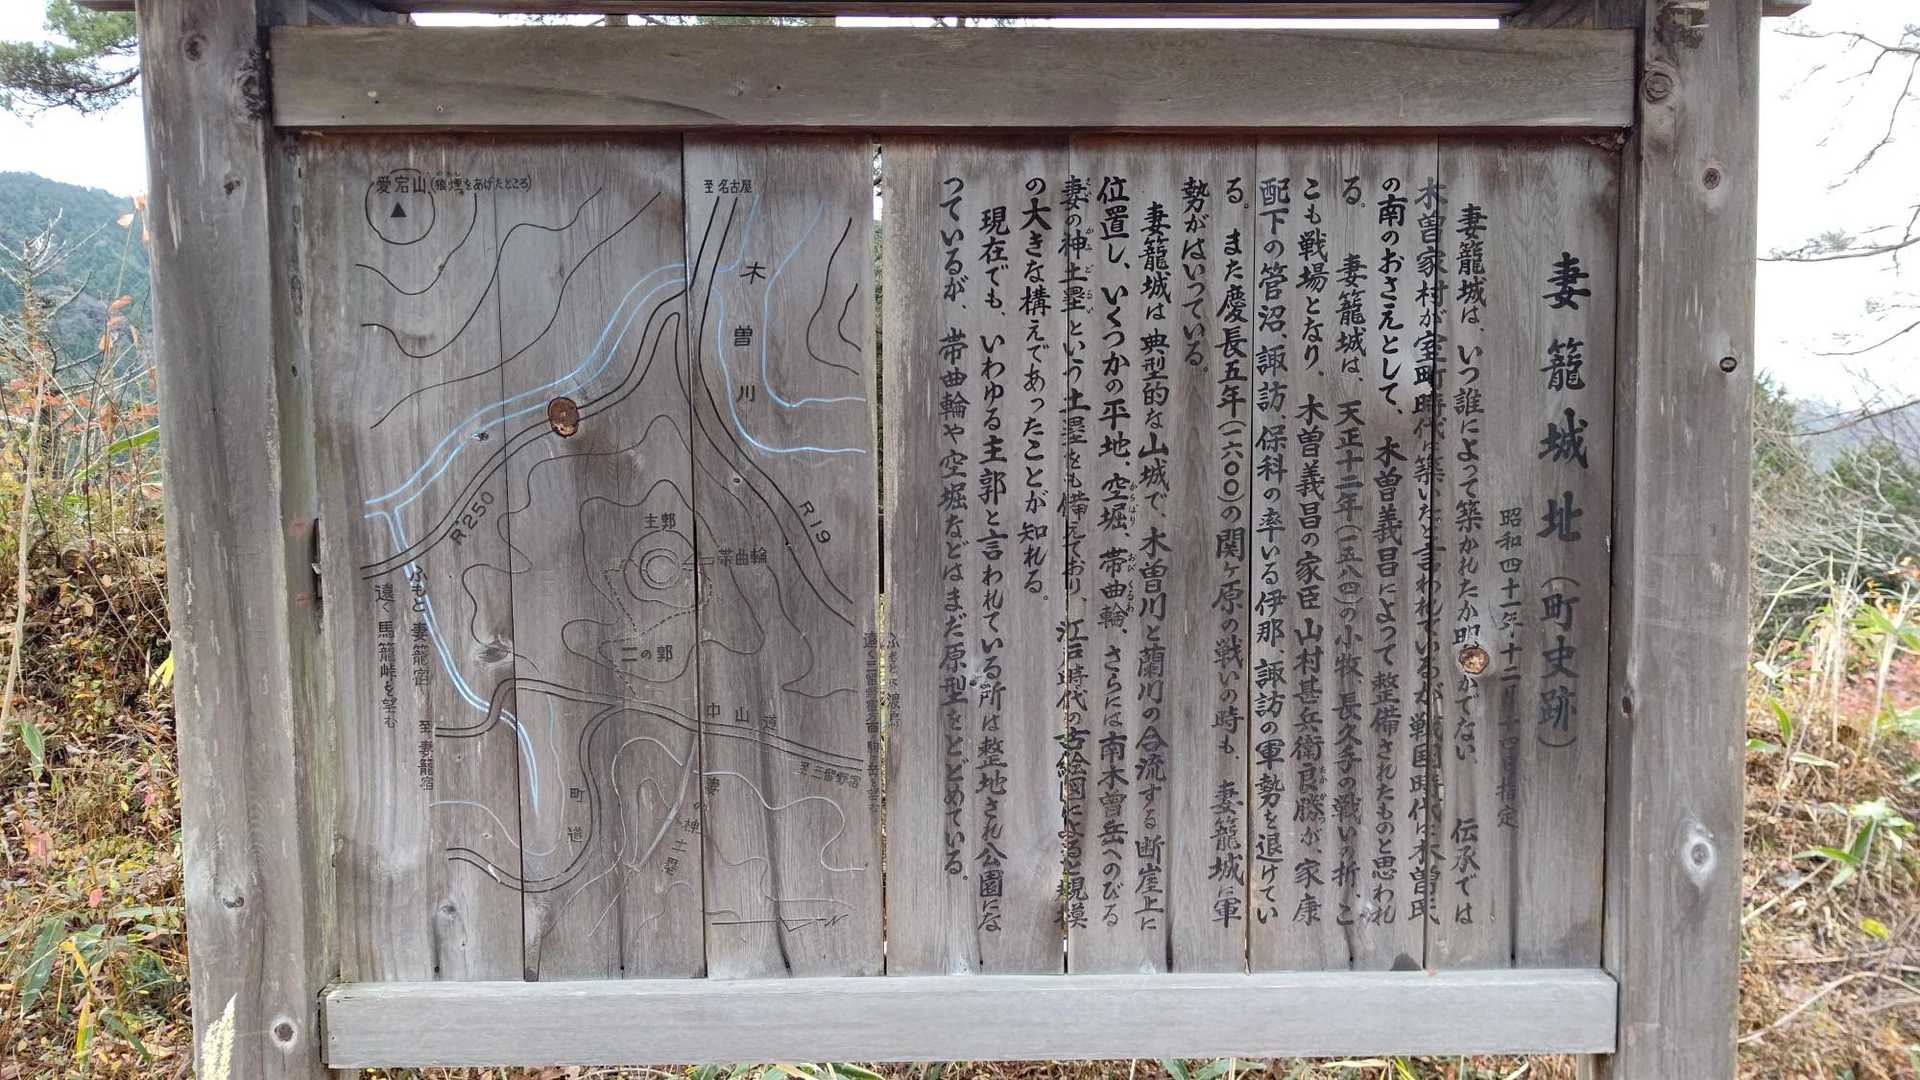 妻籠城址(町史跡)
昭和四十一年十二月十四日指定
妻籠城は、いつ誰によって築かれたか明かでない。 伝承では
木曽家村が室町時代に築いたと言われているが戦国時代に木曽氏
の南のおさえとして、木曽義昌によって整備されたものと思われ
る。 妻籠城は、天正十二年(一五八四)の小牧、長久手の戦いの折、こ
こも戦場となり、木曽義昌の家臣山村甚兵衛良勝が、家康
たかかつ
配下の管沼、諏訪、保科の率いる伊那、諏訪の軍勢を退けてい
る。また慶長五年(一六〇〇)の関ヶ原の戦いの時も、妻籠城に軍
勢がはいっている。
妻籠城は典型的な山城で、木曽川と蘭川の合流する断崖上に
位置し、いくつかの平地、空堀、帯曲輪、さらには南木曽岳へのびる
からぼり
おびくるわ
妻の神土塁という土塁をも備えており、江戸時代の古絵図によると規模
さいのかみどるい
の大きな構えであったことが知れる。
現在でも、いわゆる主郭と言われている所は整地され公園にな
っているが、帯曲輪や空堀などはまだ原型をとどめている。
愛宕山(狼煙をあげたところ)
のろし
至名古屋
木曽川
R250
R19
主郭
帯曲輪
二の郭
ふもと妻籠宿
遠く馬籠峠を望む
至妻籠宿
中山道
至三留野宿
町道
妻の神土塁
N